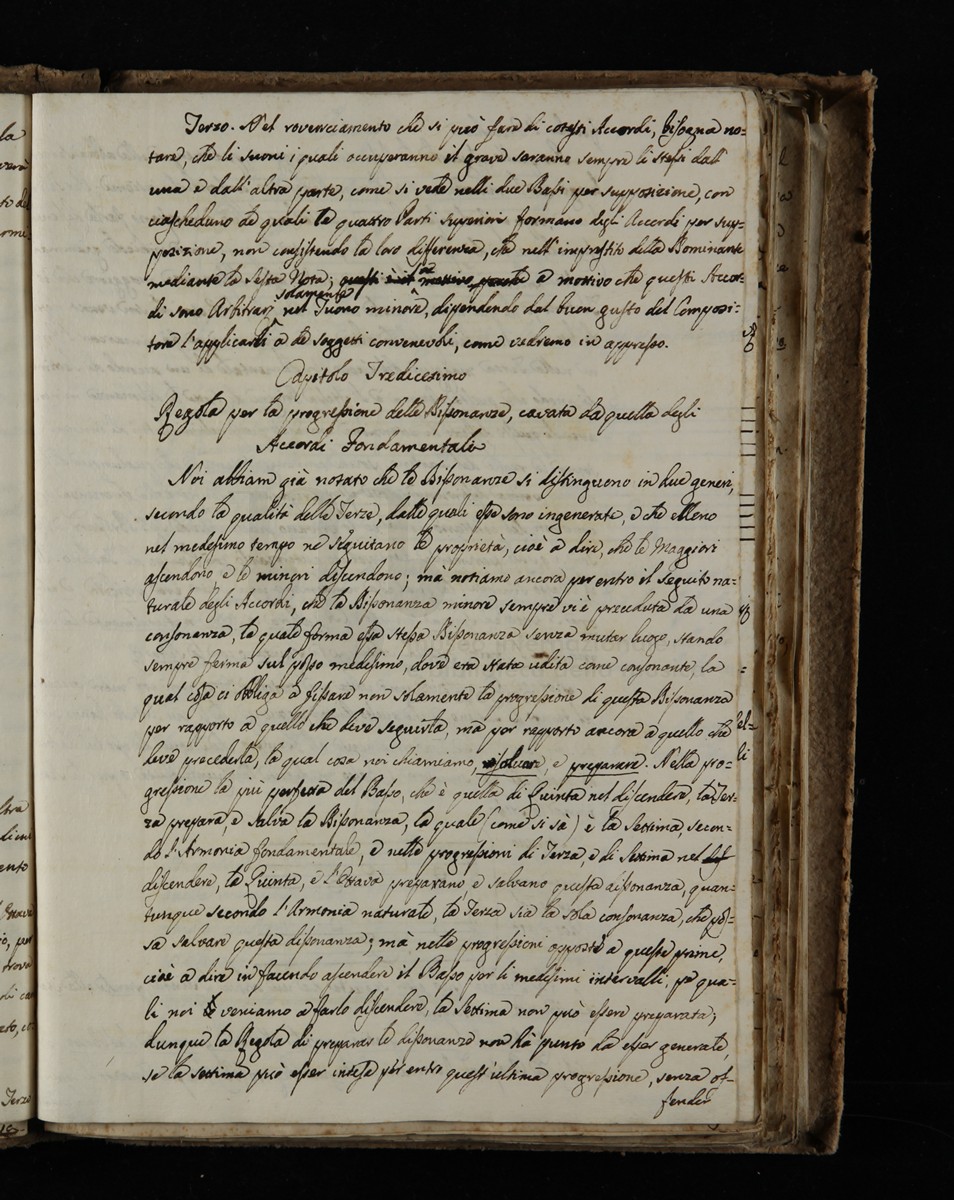 Terzo. Nel rovesciamento che si può fare di cotesti Accordi, bisogna no=
tare, che li suoni i quali occuperanno il grave saranno sempre li stessi dall'
una e dall'altra parte, come si vede nelli due Bassi per supposizione, con
ciascheduno de quali le quattro Parti superiori formano degli Accordi per sup=
posizione, non consistendo la loro differenza, che nell'imprestito della Dominante
mediante la sesta Nota; è motivo che questi Accor=
di sono Arbitrarj solamente nel Tuono minore, dipendendo dal buon gusto del Composi=
tore l'applicarli a de soggetti convenevoli, come vedremo in appresso.
Capitolo Tredicesimo
Regola per la progressione delle Dissonanze, cavata da quella degli
Accordi Fondamentali
Noi abbiam già notato che le Dissonanze si distinguono in due generi,
secondo la qualità delle Terze, dalle quali esse sono ingenerate, e che elleno
nel medesimo tempo ne seguitano le proprietà, cioè a dire, che le Maggiori
ascendono, e le minori discendono; mà notiamo ancora per entro il seguito na=
turale degli Accordi, che la Dissonanza minore sempre vi è preceduta da una
consonanza, la quale forma essa stessa Dissonanza senza mutar luogo, stando
sempre ferma sul posto medesimo, dove era stata udita come consonante, la
qual cosa ci obbliga a fissare non solamente la progressione di questa Dissonanza
per rapporto a quello che deve seguirla, ma per rapporto ancora a quello che
deve precederla, la qual cosa noi chiamiamo, risolvere, e preparare. Nella pro=
gressione la più perfetta del Basso, che è quella di Quinta nel discendere, la Ter=
za prepara, e salva la Dissonanza, la quale (come si sà) è la Settima, secon=
do l'Armonia fondamentale, e nelle progressioni di Terza, e di Settima nel
discendere, la Quinta, e l'Ottava preparano, e salvano questa dissonanza, quan=
tunque secondo l'Armonia naturale, la Terza sia la sola consonanza, che pos=
sa salvare questa dissonanza; mà nelle progressioni opposte a queste prime,
cioè a dire in facendo ascendere il Basso per li medesimi intervalli, pe qua=
li noi veniamo a farlo discendere, la Settima non può essere preparata;
dunque la Regola di preparar le dissonanze non hà punto da esser generale,
se la settima può esser intesa per entro quest'ultima progressione, senza of=
fender